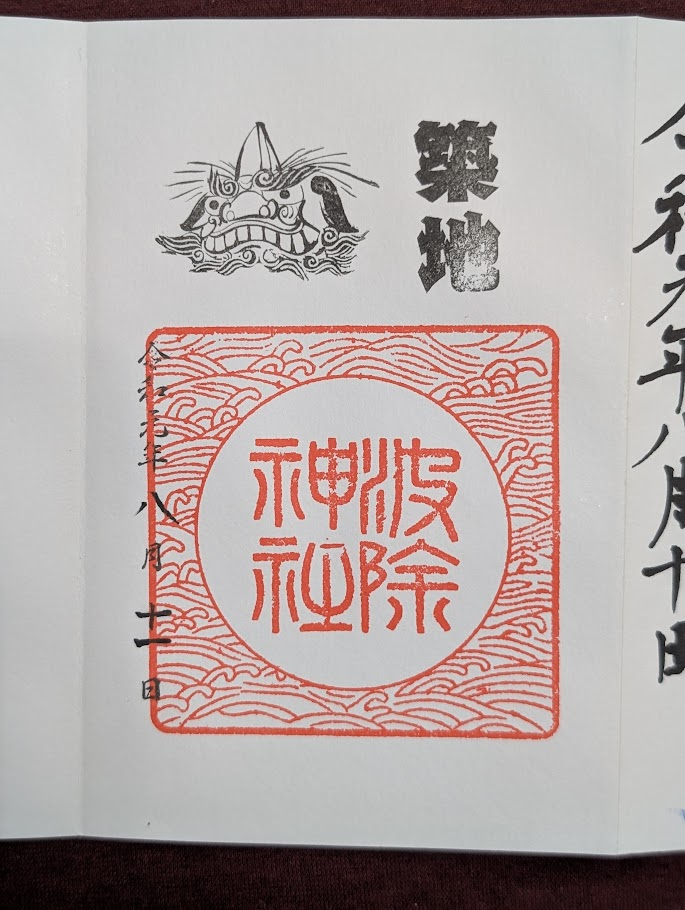 令和元年八月十日
築地
波除
神社
令和元年八月十一日